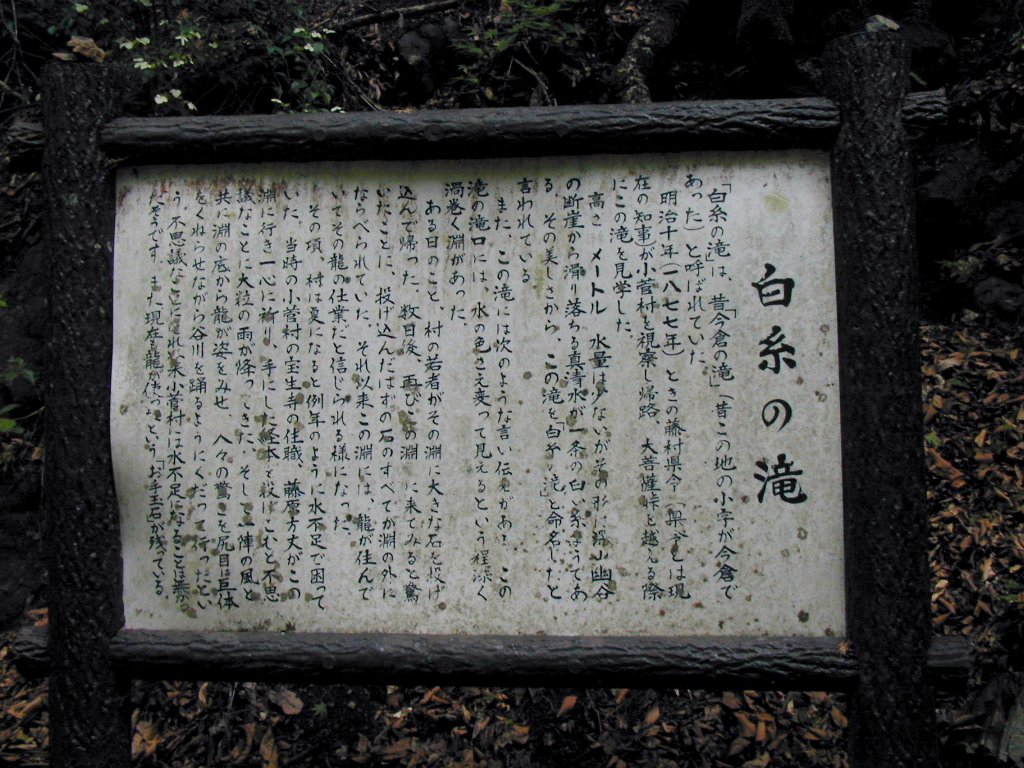 白糸の滝
「白糸の滝」は、昔「今倉の滝」(昔この地の小字が今倉で
あった)と呼ばれていた。
明治十年(一八七七年)ときの藤村県令(県令とは現
在の知事)が小菅村を視察し帰路、大菩薩峠を越える際
にこの滝を見学した。
高さ メートル 水量は少ないがその形は深山幽谷
の断崖から滑り落ちる真清水が一条の白い糸のようであ
る。その美しさから、この滝を白糸の滝と命名したと
言われている。
また、この滝には次のような言い伝えがある。この
滝の滝口には、水の色さえ変って見えるという程深く
渦巻く淵があった。
ある日のこと、村の若者がその淵に大きな石を投げ
込んで帰った。数日後、再びこの淵に来てみると驚
いたことに、投げ込んだはずの石のすべてが淵の外に
ならべられていた。それ以来この淵には、龍が住んで
いてその龍の仕業だと信じられる様になった。
その頃、村は夏になると例年のように水不足で困って
いた。当時の小菅村の宝生寺の住職、藤原方丈がこの
淵に行き一心に祈り、手にした経本を投げこむと不思
議なことに大粒の雨が降ってきた。そして一陣の風と
共に淵の底から龍が姿をみせ、人々の驚きを尻目に巨体
をくねらせながら谷川を踊るようにくだって行ったとい
う 不思議な 来小菅村には水不足になることは無か
たそうです。また現在龍が という「お手玉石」が残っている